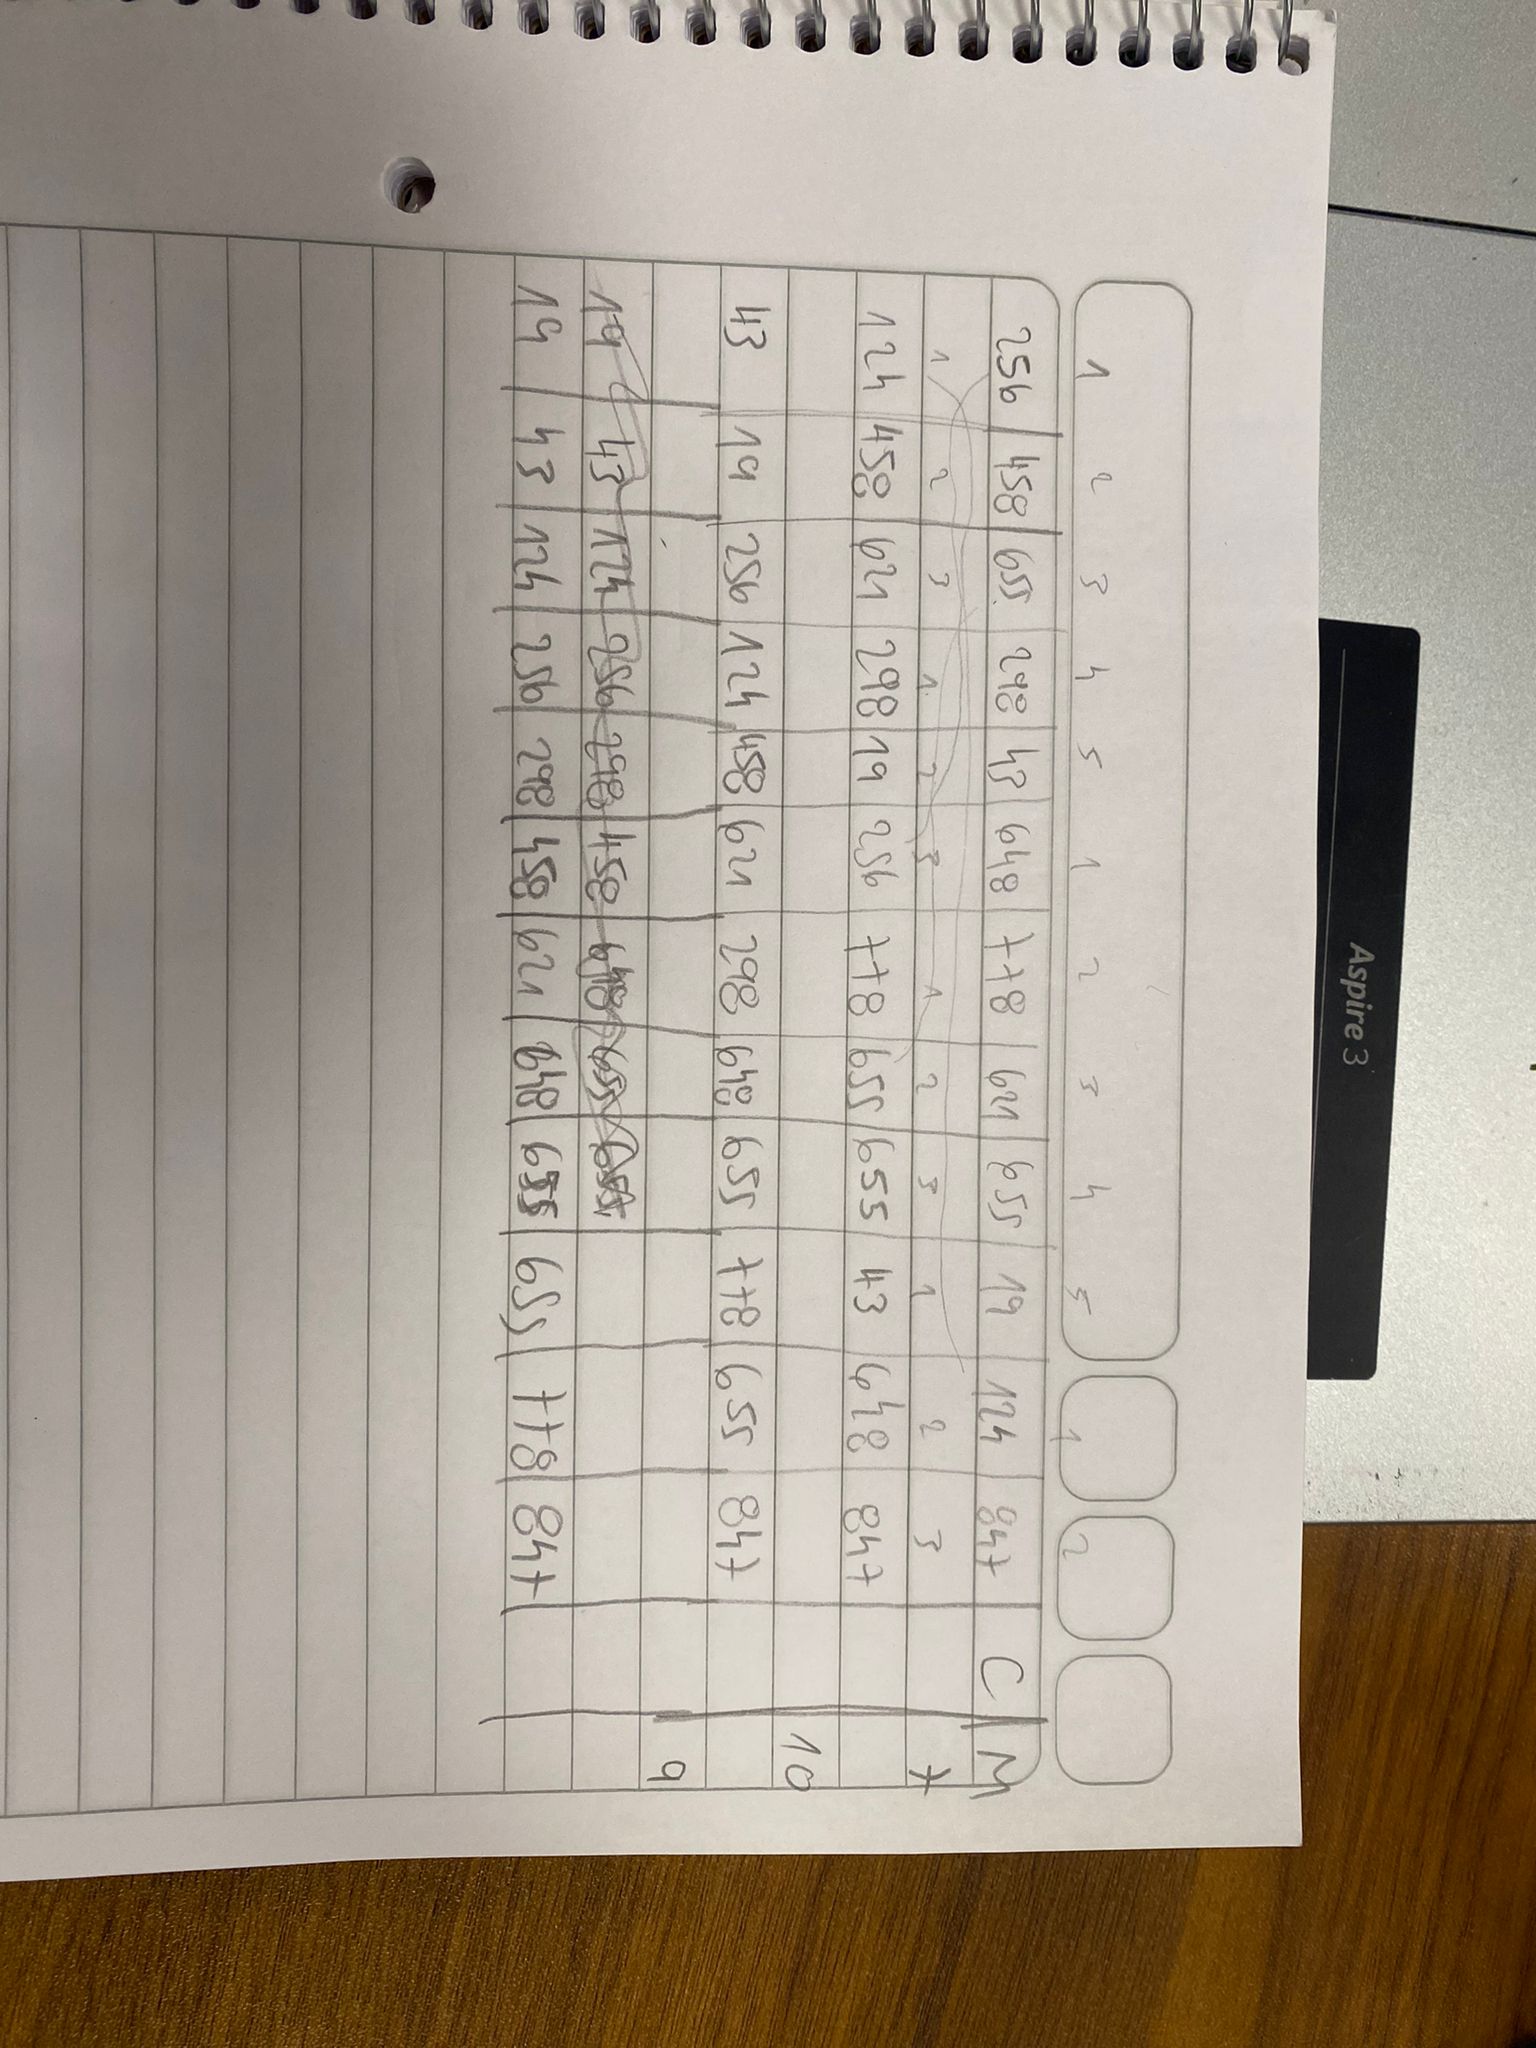 1 2 3 4 5 1 2 3 4 5 1 2
256 458 655 298 43 648 778 621 655 19 124 847 C M
1 2 3 1 2 3 1 2 3 1 2 3 7
124 458 621 298 19 256 778 655 655 43 648 847
10
43 19 256 124 458 621 298 648 655 778 655 847
9
19 43 124 256 298 458 648 655
19 43 124 256 298 458 621 648 655 655 778 847
Aspire 3